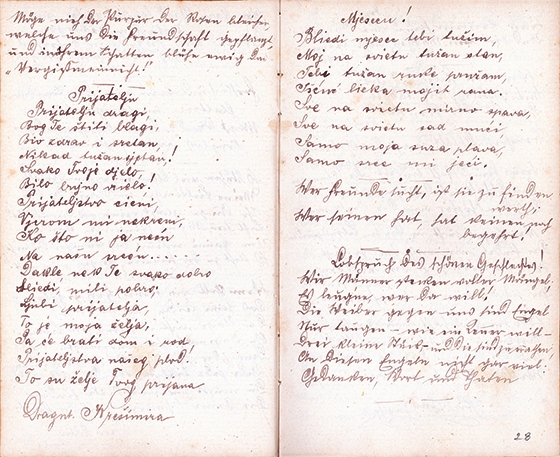 Möge nich der Purpur der Rosen bleichen
welche uns die Freundschaft gepflanzt,
und in ihrem Schatten blühe ewig den
„Vergißmeinnicht!"
Prijatelju
Prijatelju dragi,
Bog Te štiti blagi,
Bio zdrav i sretan,
Nikad tužan
Svako Tvoje djelo,
Bilo bujno vrelo!
Prijateljstvo cieni,
Vjerom mi nekreni,
Ko što ni ja nećn
Na našn nećn......
Dakle nek Te svako dobro
Sliedi, mili pobro;
Ljubi prijatelja,
To je moja želja,
Ta će brati dom i rod!
Prijateljstva našeg plod.
To su želje Tvog prijana
Dragnt. Krešimira
Mjesecu!
Bliedi mjesec tebi tužim,
Moj na svietu tužan stan,
Tebi tužan ruke pružam,
licka mojih rana.
Sve na svietu mirno spava,
Sve na svietu sad muči,
Samo moja suza plava,
Samo srce mi ječi.
Wer Freunde sucht, ist sie zu finden
werth;
Wer keinen hat, hat keinen noch
begehrt!
Lobspruch des schönen Geschlechtes!
Wir Männer stecken voller Mängel
Es leugne, wer da will!
Die Weiber gegen uns sind Engel
Nur taugen - wie ein Jener will -
Drei kleine Stück - und die sind zu rathen
An diesen Engeln nicht gar viel:
Gedanken, Wort und Thaten
28